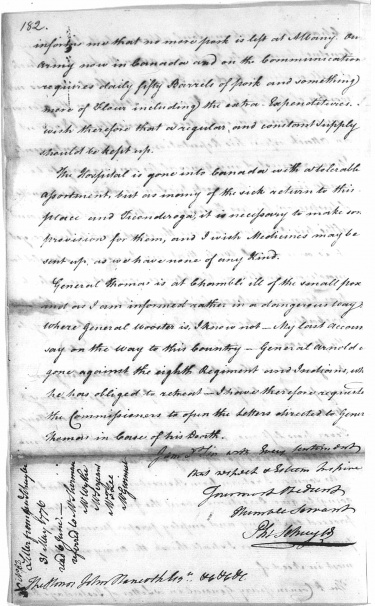 182.
informs me that no more pork is left at Albany. Our
Army now in Canada and on the Communication
requires daily fifty Barrels of pork and something
more of Flour including the extra Expenditures. I
wish therefore that a regular and constant supply
should be kept up.
The Hospital is gone into Canada with a tolerable
assortment, but as many of the sick return to this
place and Ticonderoga, it is necessary to make some
provision for them, and I wish Medicines may be
sent up, as we have none of any Kind.
General Thomas is at Chamblé ill of the small pox
and as I am informed rather in a dangerous way,
where General Wooster is, I know not — My last accounts
say on the way to this Country — General Arnold is
gone against the eighth Regiment and Indians, whom
he has obliged to retreat — I have therefore requested
the Commissioners to open the Letters directed to General
Thomas in Case of his Death.
I am Sir with Every sentiment
of respect & Esteem
Your most Obedient
Humble Servant
Ph: Schuyler
The Honor. John Hancock Esqr. &c &c &c
Letter from genl Schuyler
31 May 1776
read
referred to Mr Sherman
Mr Wythe